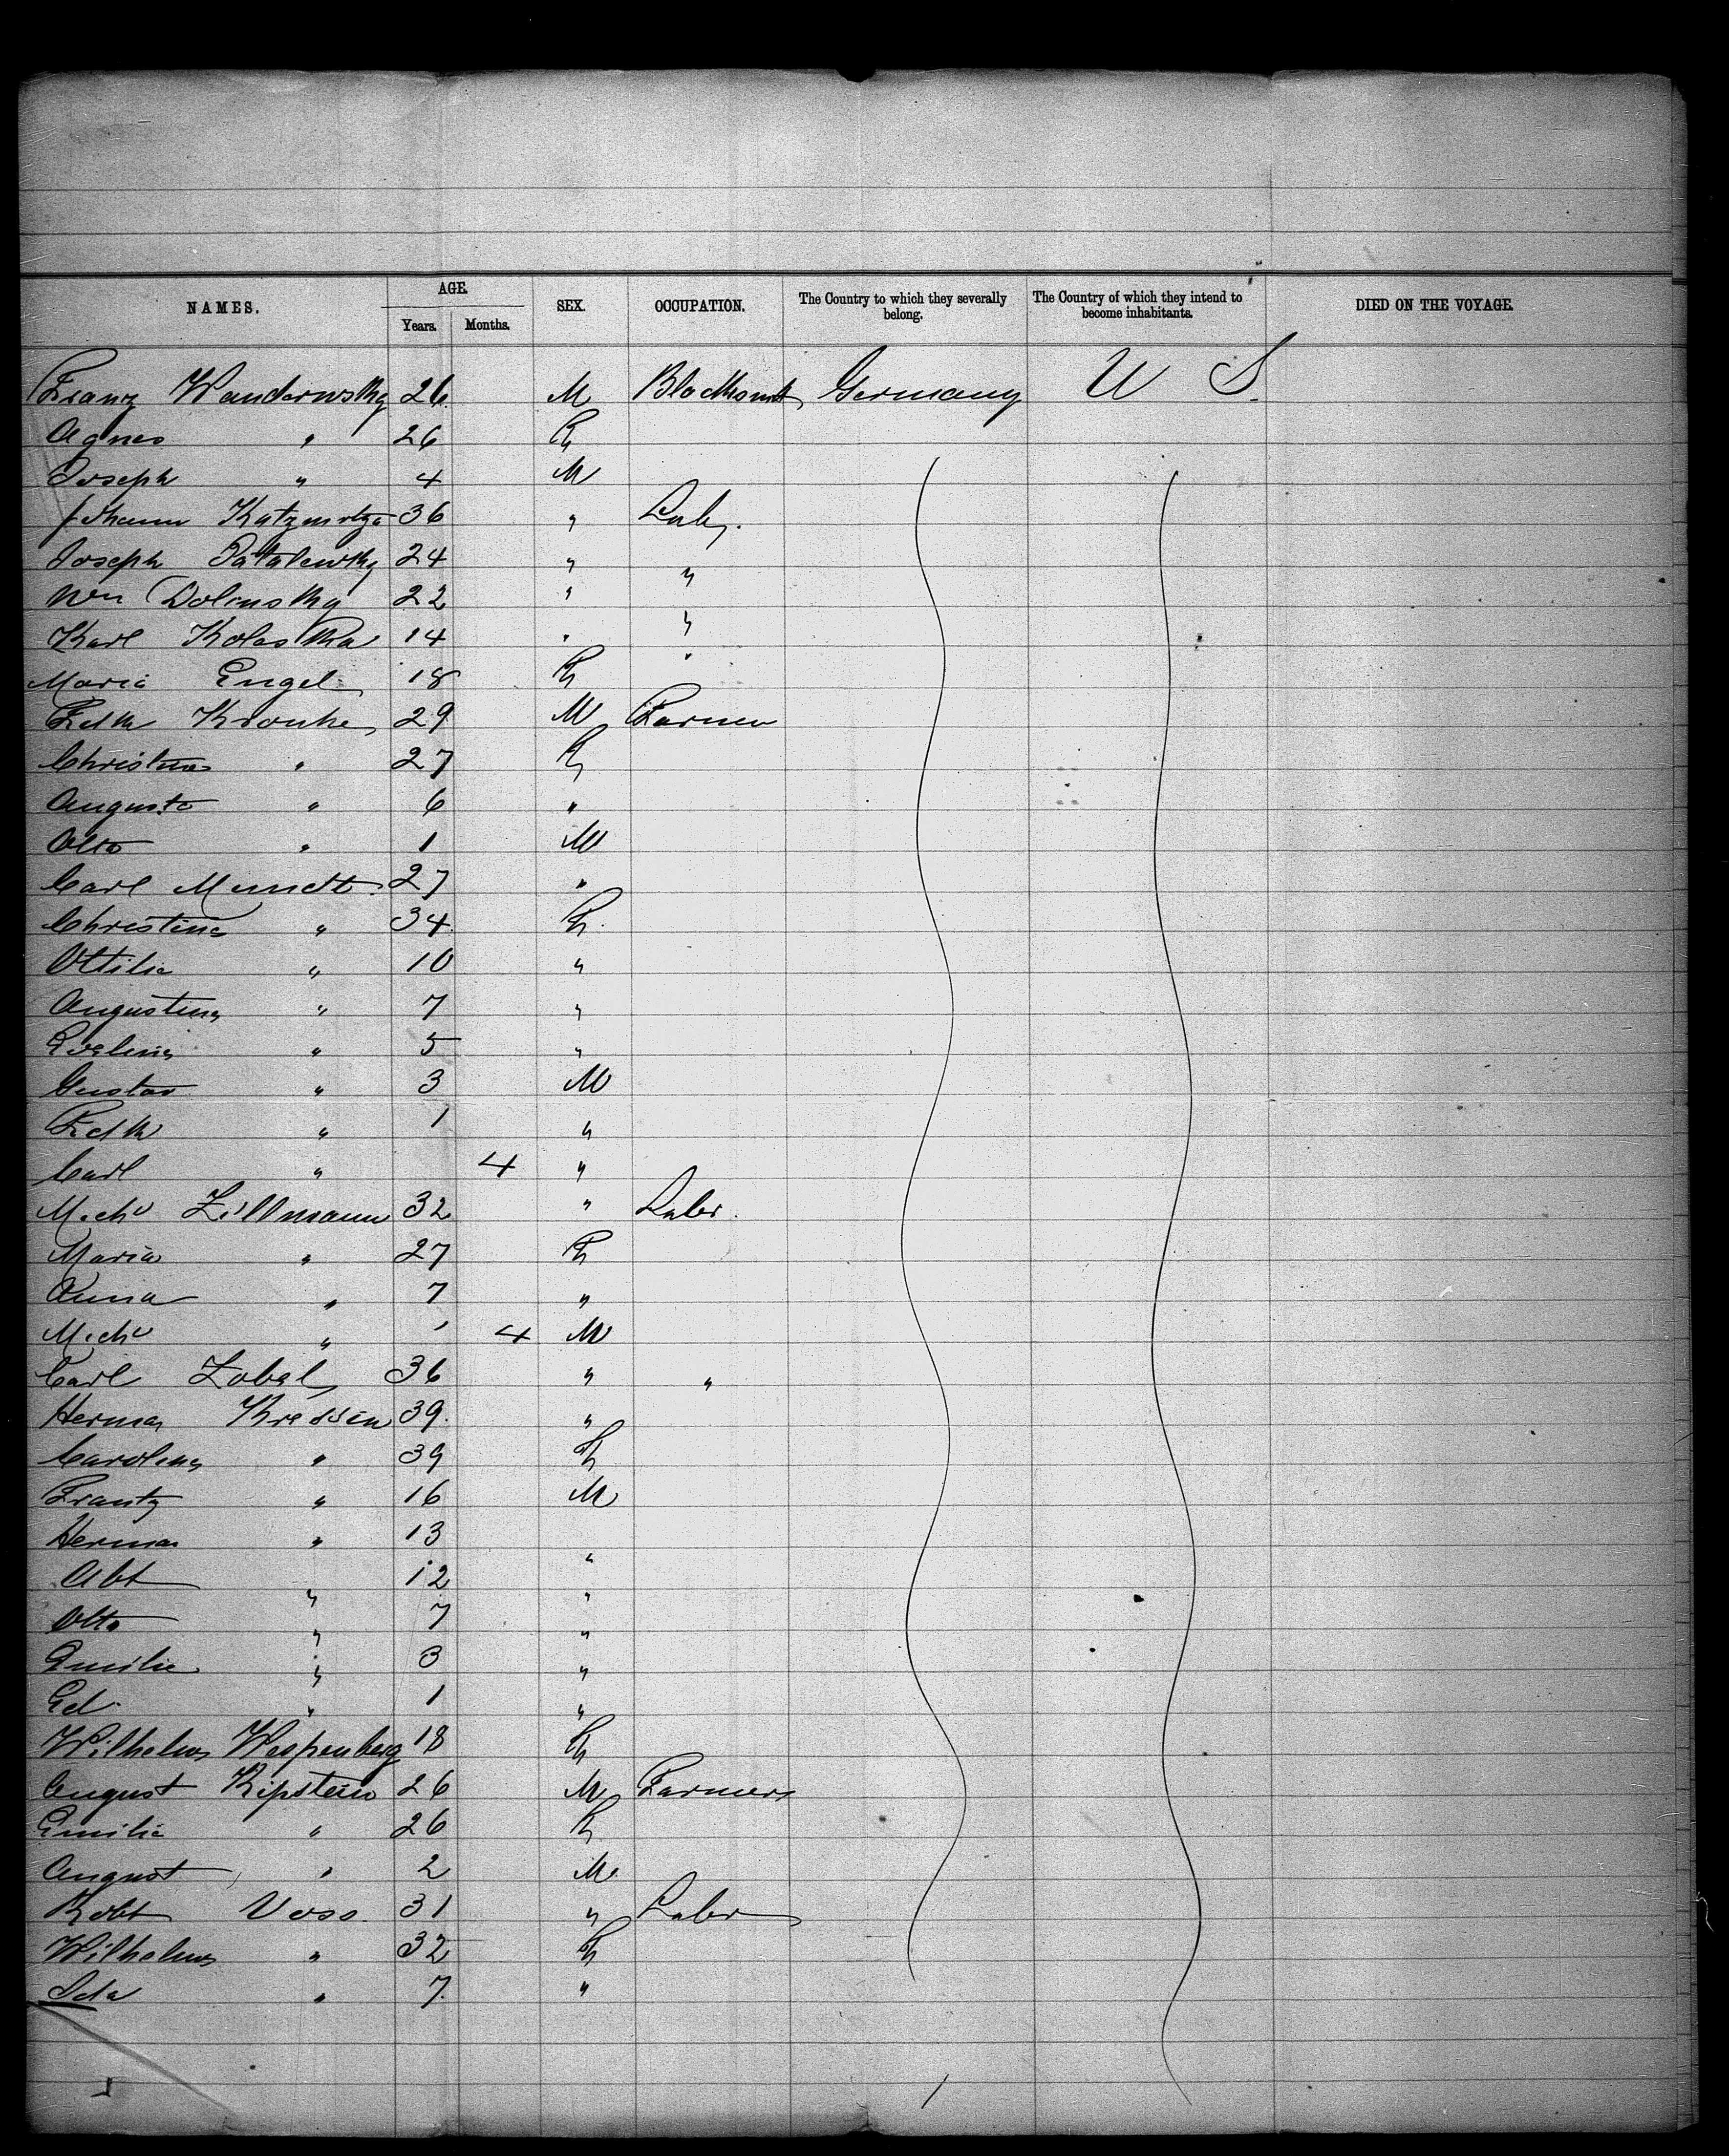 NAMES. AGE. Years. Months. SEX. OCCUPATION. The Country to which they severally belong. The Country of which they intend to become inhabitants. DIED ON THE VOYAGE.
Franz 26 M Blacksmith Germany U S.
Agnes " 26 F
Joseph " 4 M
Johann 36 " Labr.
Joseph 24 " "
Wm Dolinsky 22 " "
Karl Kolaska 14 " "
Maria Engel 18 F
Fredk Kronke 29 M Farmer
Christina " 27 F
Augusta " 6 "
Otto " 1 M
Carl Mundt 27 "
Christina " 34 F
Ottilie " 10 "
Augustina " 7 "
Evelina " 5 "
Gustav " 3 M
Fredk " 1 "
Carl " 4 "
Michl Zillmann 32 " Labr.
Maria " 27 F
Anna " 7 "
Michl " 4 M
Carl Zobel 36 " "
Herman Kressin 39 "
Carolina " 39 F
Frantz " 16 M
Herman " 13 "
Abt " 12 "
Otto " 7 "
Emilie " 3 "
Ed " 1 "
Wilhelm Wespenberg 18 F
August Ripstein 26 M Farmers
Emilie " 26 F
August " 2 M
Robt Voss. 31 " Labr
Wilhelm " 32 F
Ida " 7 "